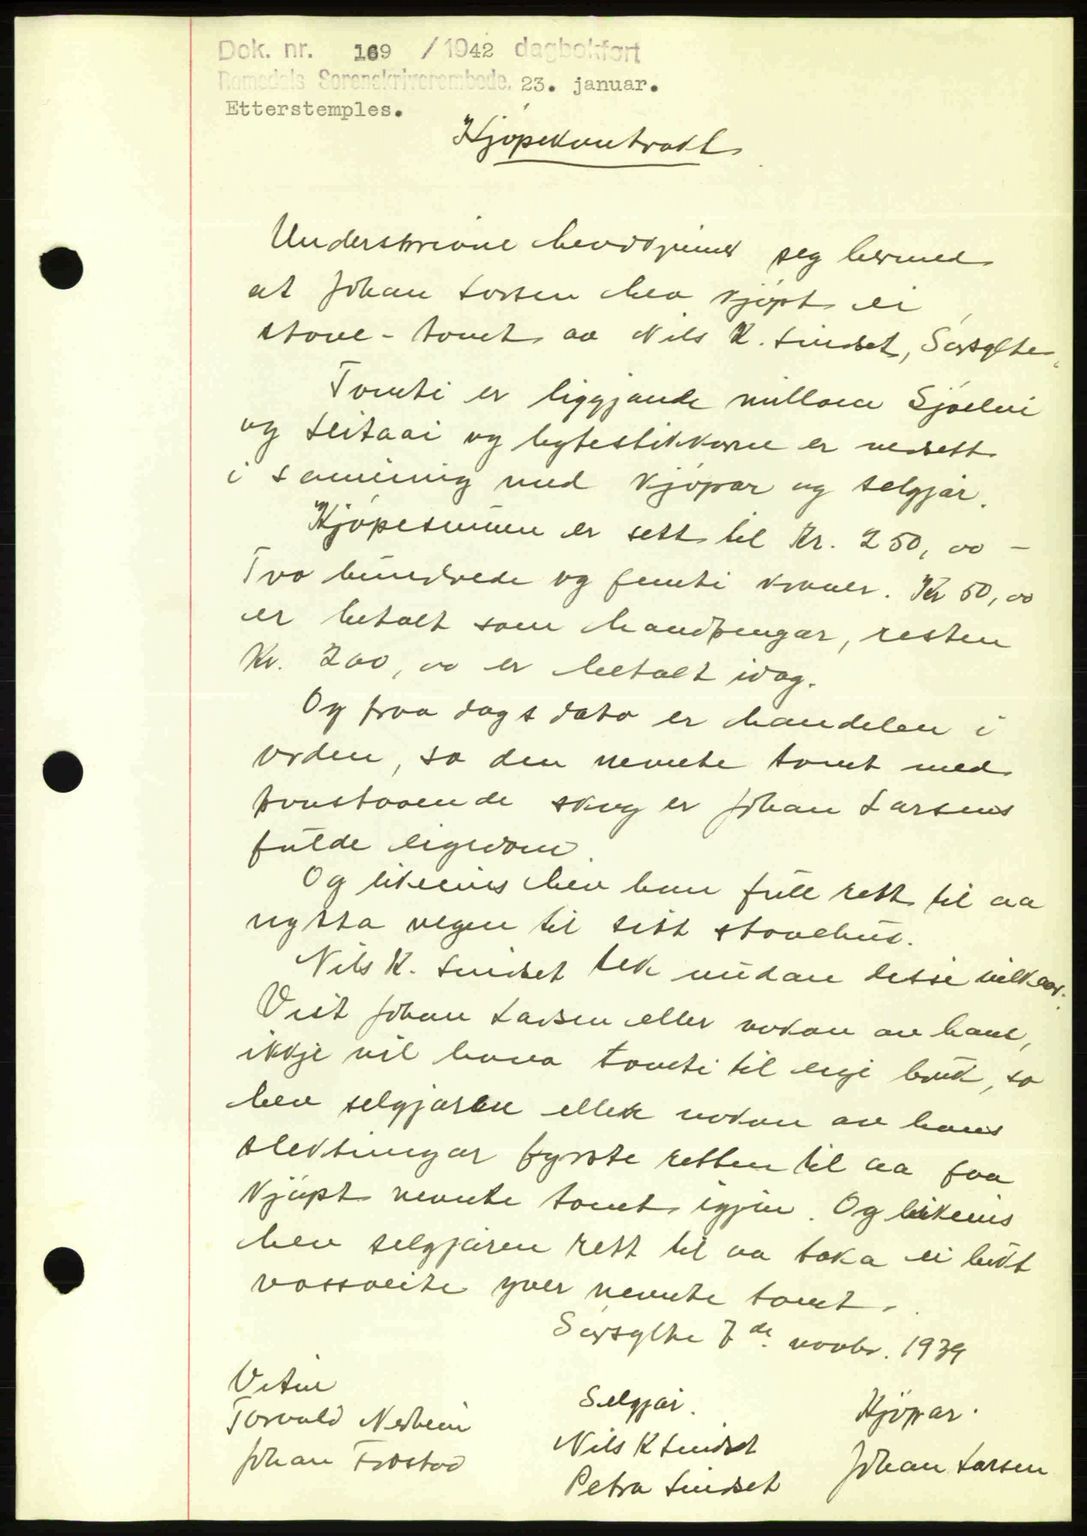 Dok. nr. 169 / 1942 dagbokført
Romsdals Sorenskriverembede, 23. januar.
Etterstemples.
Kjøpekontrakt
Underskrivne hermed
at Johan Larsen hev kjøpt ei
stove-tomt av Nils K. Lindset, Sørsylte.
Tomti er liggjande millom Sjøelvi
og og bytestikkorne er nedsett
i samining med kjøpar og seljar.
Kjøpesumen er sett til Kr. 250,00 –
Tvo hundrede og femti kroner. Kr 50,00
er betalt som handpengar, resten
Kr. 200,00 er betalt idag.
Og fraa dags dato er handelen i
orden, so den nemnte tomt med
paastaaende skog er Johan Larsens
fulde eigedom.
Og likeeins hev han full rett til aa
nytta vegen til sitt stovehus.
Nils K. Lindset tek undan desse vilkaar:
Vist Johan Larsen eller nokon av hans,
ikkje vil hava tomti til eige bruk, so
hev selgjaren eller nokon av hans
slektningar fyrste retten til aa faa
kjøpt nemnte tomt igjen. Og likeeins
hev selgjaren rett til aa taka ei lukt
vassveite yver nemnte tomt.
Sørsylte 7de novbr. 1939
Vitni
Torvald Nerheim
Johan Frostad
Selgjar.
Nils K Lindset
Petra Lindset
Kjøpar.
Johan Larsen